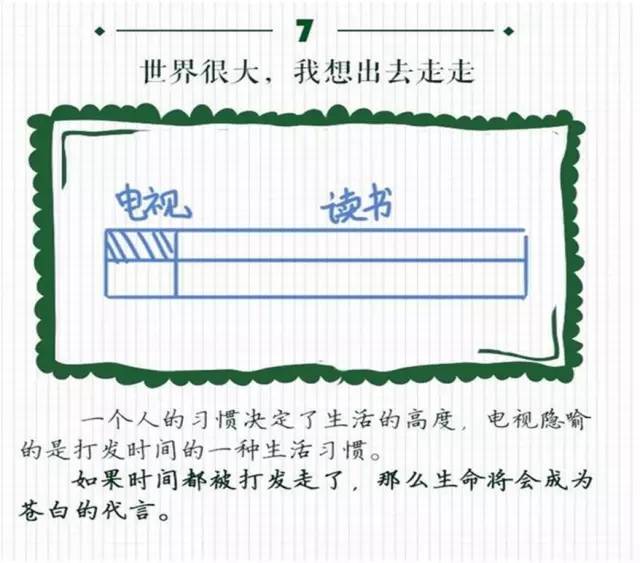 7
世界很大，我想出去走走
电视 读书
一个人的习惯决定了生活的高度，电视隐喻
的是打发时间的一种生活习惯。
如果时间都被打发走了，那么生命将会成为
苍白的代言。